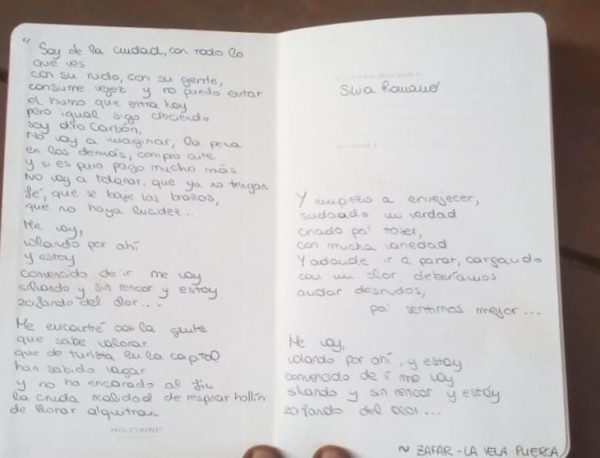 "Soy de la ciudad, con todo lo
que ves
con su ruido, con su gente,
consume vejez y no puedo evitar
el humo que entra hoy
pero igual sigo creciendo
soy otro carbón,
No voy a imaginar, la pena
en los demás, compro aire
y si es puro pago mucho más
No voy a tolerar, que ya no tengan
fé, que se baje los brazos,
que no haya lucidez...
Me voy,
volando por ahí
y estoy
convencido de ir me voy
silbando y sin rencor y estoy
zafando del olor...
Me encontré con la gente
que sabe valorar
que de turista en la capital
han sabido vagar
y no ha encarado al fin
la cruda realidad de respirar hollín
de llorar alquitran
MOLESKINE
Silvia Romano
Y empezo a envejecer,
sudando un verdad
criado pa' toser,
con mucha vanedad
Y adonde ir a parar, cargando
con un olor, deberíamos
andar desnudos,
pa' sentirnos mejor...
Me voy,
volando por ahí, y estoy
convencido de ir me voy
silbando y sin rencor y estóy
zafando del olor...
~ ZAFAR - LA VELA PUERCA